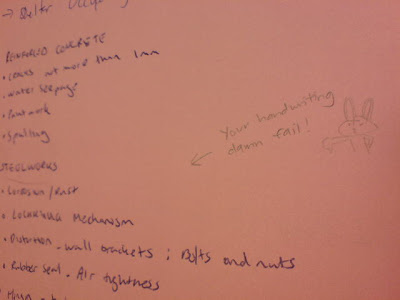 → Shelter
REINFORCED CONCRETE
• cracks not more than 1mm
• water seepage
• Paint work
• Spalling
Your handwriting
damn fail!
←
STEELWORKS
• Corrosion / Rust
• Locking Mechanism
• Distortion - wall brackets ; Bolts and nuts
• Rubber seal - Air tightness